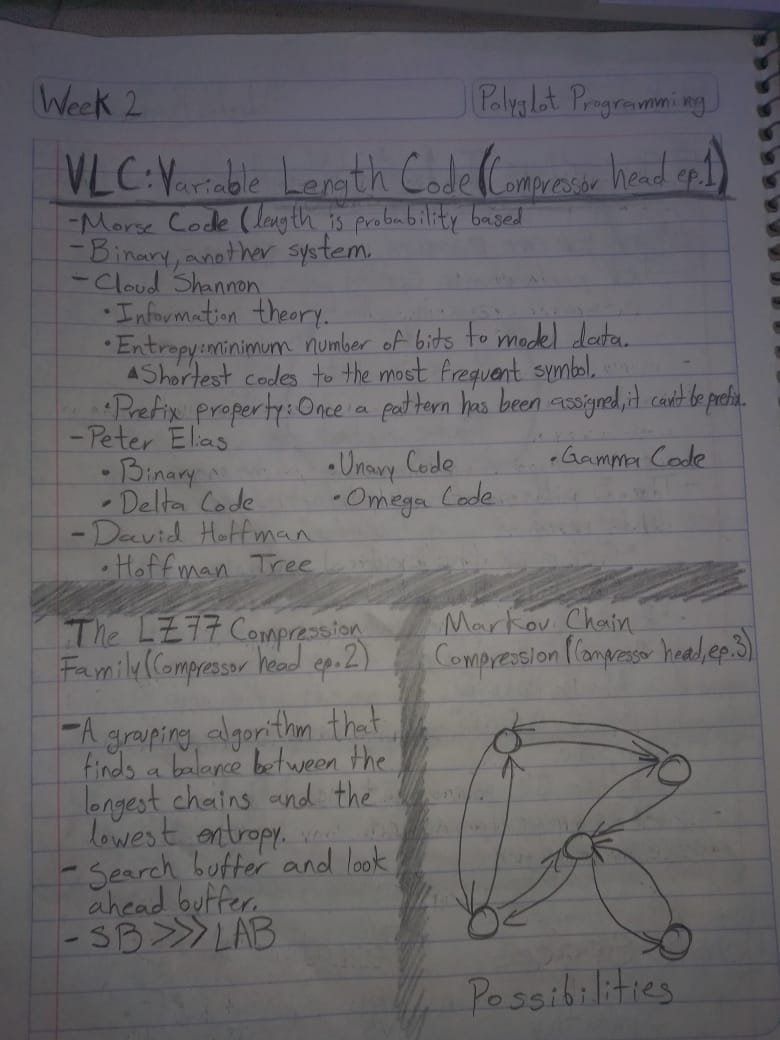 Week 2
Polyglot Programming
VLC: Variable Length Code (Compressor head ep.1)
- Morse Code (length is probability based
- Binary, another system.
- Cloud Shannon
• Information theory.
• Entropy: minimum number of bits to model data.
▲ Shortest codes to the most frequent symbol.
• Prefix property: Once a pattern has been assigned, it can't be prefix.
- Peter Elias
• Binary • Unary Code • Gamma Code
• Delta Code • Omega Code
- David Hoffman
• Hoffman Tree
The LZ77 Compression
Family (Compressor head ep. 2)
- A grouping algorithm that
finds a balance between the
longest chains and the
lowest entropy.
- Search buffer and look
ahead buffer.
- SB >>> LAB
Markov Chain
Compression (Compressor head, ep. 3)
Possibilities